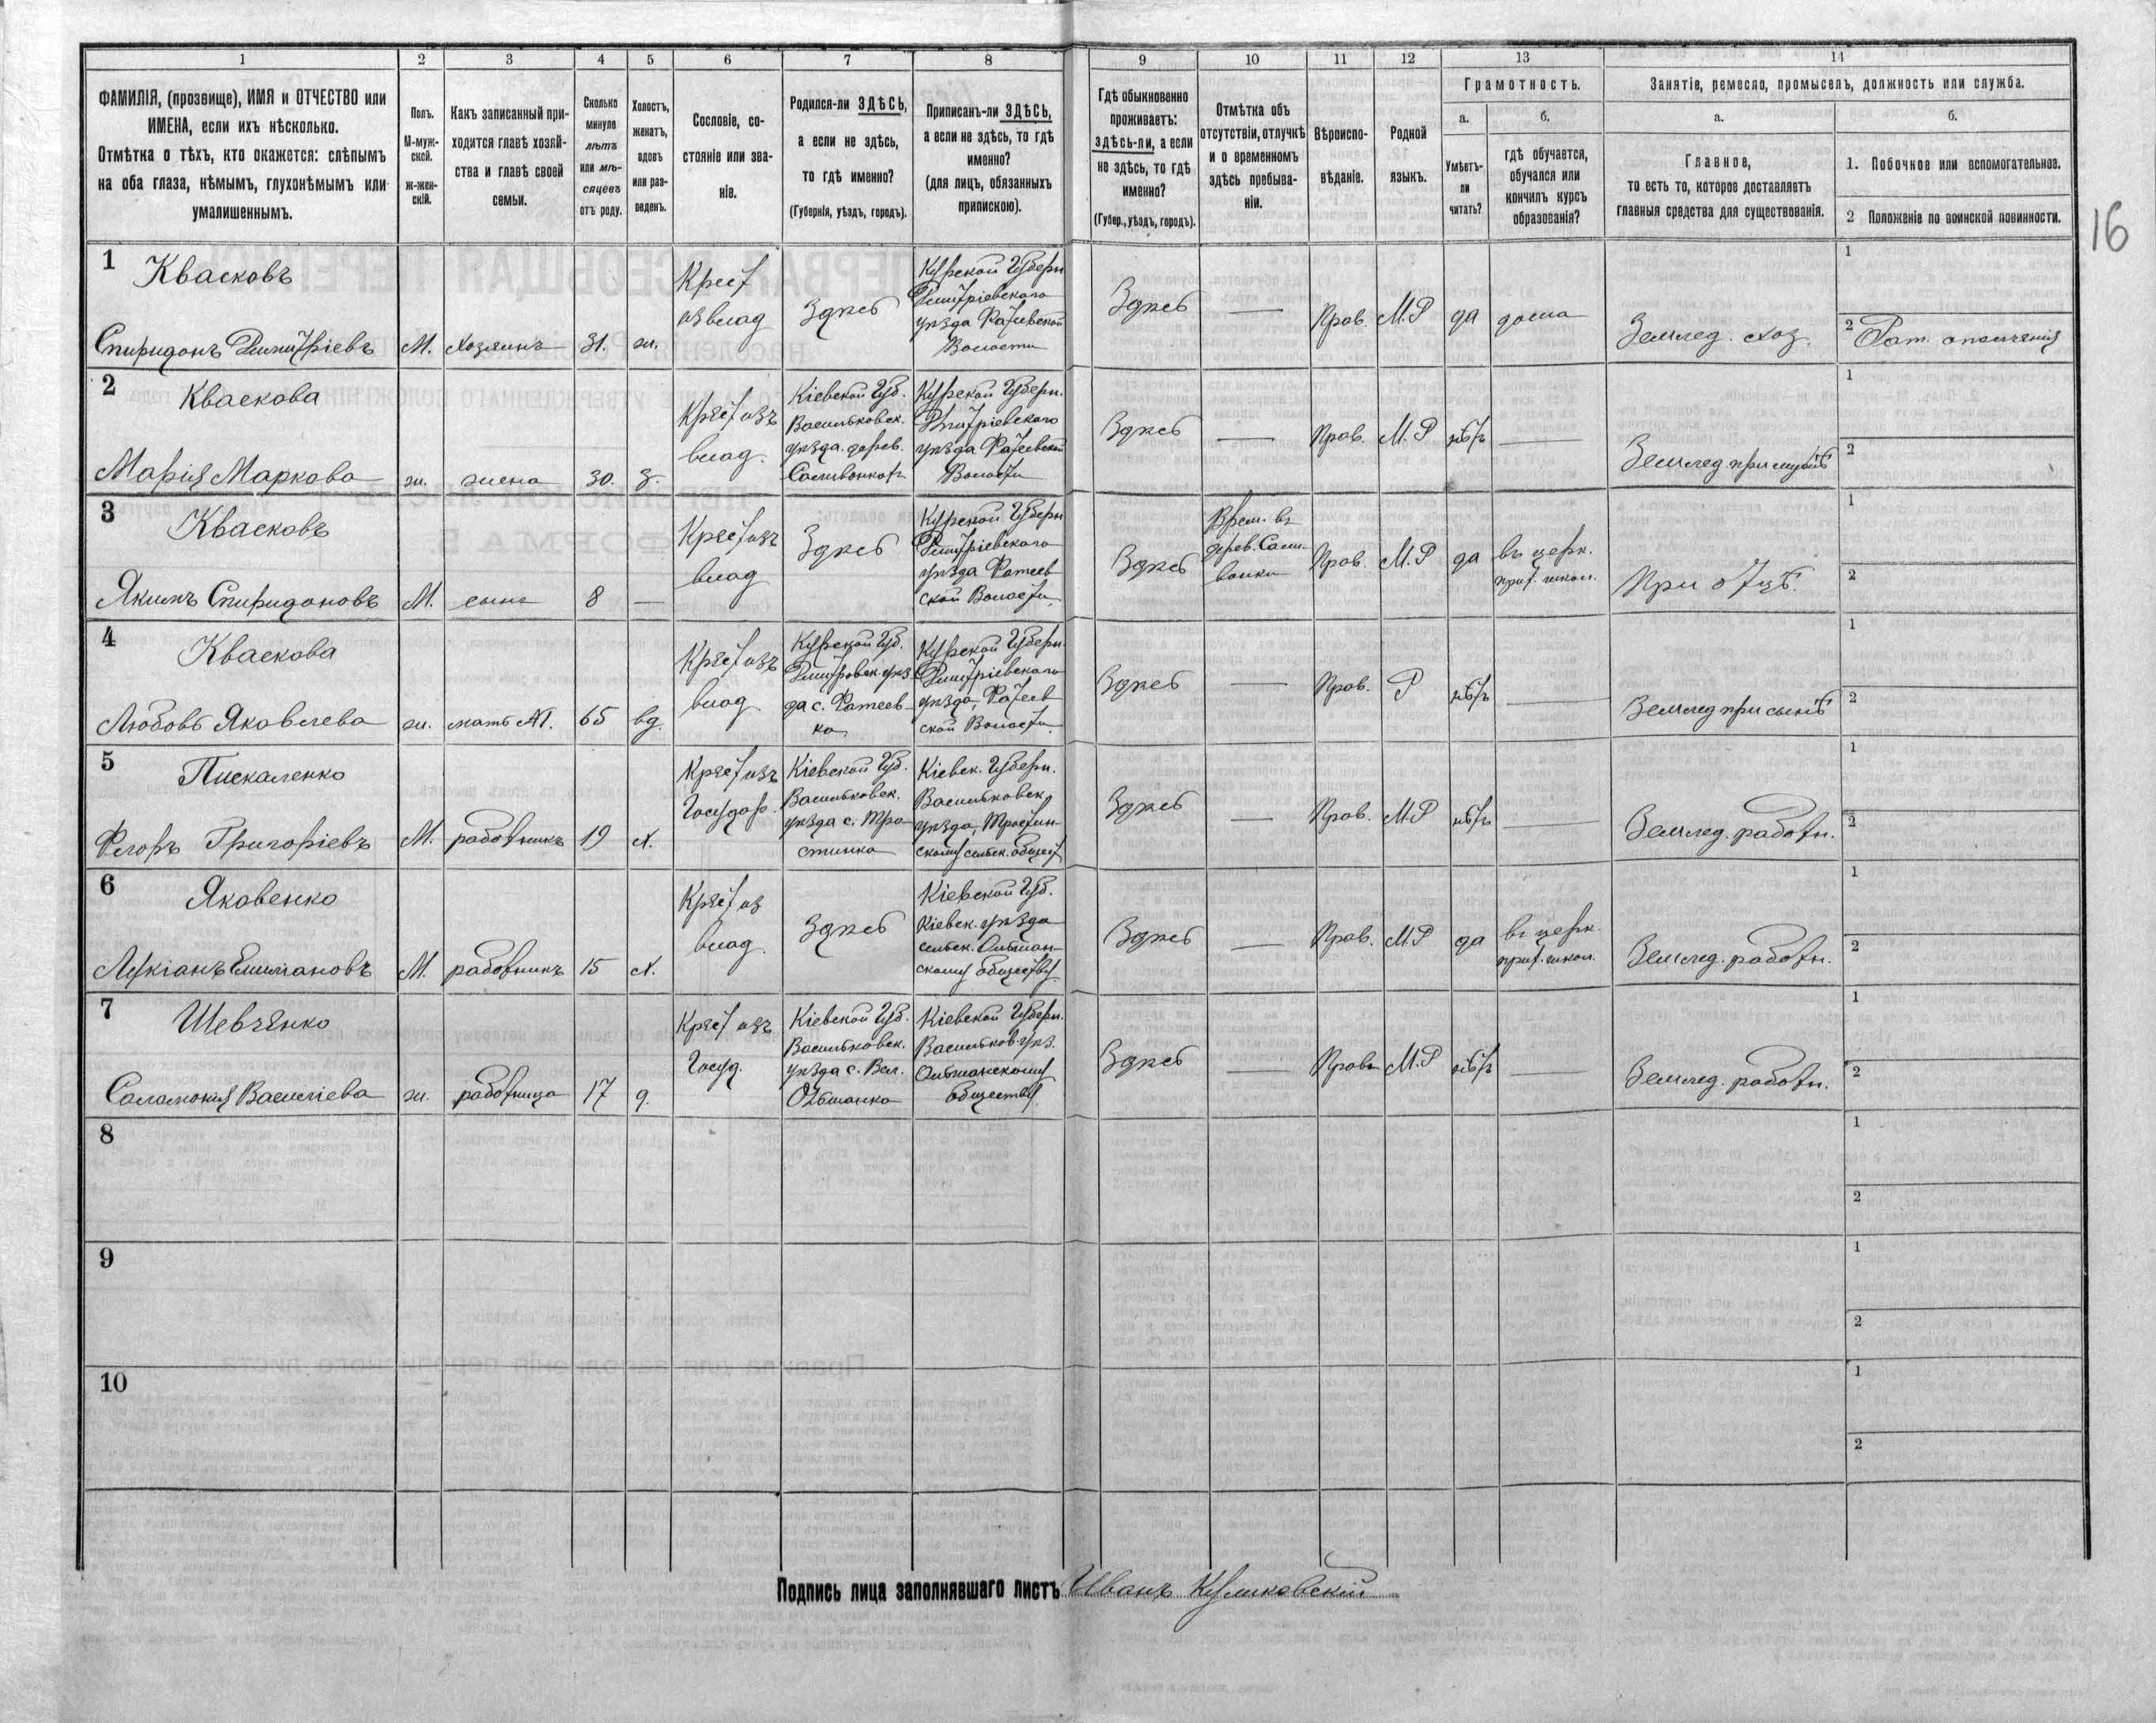 1 2 3 4 5 6 7 8 9 10 11 12 13 14
ФАМИЛІЯ, (прозвище), ИМЯ и ОТЧЕСТВО или
ИМЕНА, если ихъ нѣсколько.
Отмѣтка о тѣхъ, кто окажется: слѣпымъ
на оба глаза, нѣмымъ, глухонѣмымъ или
умалишеннымъ.
Полъ.
М-муж-
ской.
Ж-жен-
скій.
Какъ записанный при-
ходится главѣ хозяй-
ства и главѣ своей
семьи.
Сколько
минуло
лѣтъ
или мѣ-
сяцевъ
отъ роду.
Холостъ,
женатъ,
вдовъ
или раз-
веденъ.
Сословіе, со-
стояніе или зва-
ніе.
Родился-ли ЗДѢСЬ,
а если не здѣсь,
то гдѣ именно?
(Губернія, уѣздъ, городъ).
Приписанъ-ли ЗДѢСЬ,
а если не здѣсь, то гдѣ
именно?
(для лицъ, обязанныхъ
припискою).
Гдѣ обыкновенно
проживаетъ:
здѣсь-ли, а если
не здѣсь, то гдѣ
именно?
(Губер., уѣздъ, городъ).
Отмѣтка объ
отсутствіи, отлучкѣ
и о временномъ
здѣсь пребыва-
ніи.
Вѣроиспо-
вѣданіе.
Родной
языкъ.
Грамотность.
а.
Умѣетъ-
ли
читать?
б.
гдѣ обучается,
обучался или
кончилъ курсъ
образованія?
Занятіе, ремесло, промыселъ, должность или служба.
а.
Главное,
то есть то, которое доставляетъ
главныя средства для существованія.
б.
1. Побочное или вспомогательное.
2 Положеніе по воинской повинности.
16
1
Квасковъ
Спиридонъ Димитріевъ
М.
Хозяинъ
31.
ж.
Крест
из влад
Здѣсь
Курской Губерн
Димитріевского
уѣзда Фатеевской
Волости
Здѣсь
—
Прав.
М.Р
да
дома
Землед. хоз.
1
2 Рат. ополченія
2
Кваскова
Марія Маркова
ж.
жена
30.
з.
Крест изъ
влад.
Кіевской Губ.
Васильковск.
уѣзда. дерев.
Саливонкахъ
Курской Губерн.
Дмитріевского
уѣзда Фатеевской
Волости
Здѣсь
—
Прав.
М.Р
нѣтъ
—
Землед. при мужѣ
1
2
3
Квасковъ
Якимъ Спиридоновъ
М.
сынъ
8
—
Крест изъ
влад
Здѣсь
Курской Губерн
Димитріевского
уѣзда Фатеев
ской Волости
Здѣсь
Врем. въ
дерев. Сали-
вонки
Прав.
М.Р
да
въ церк.
прих. школ.
При отцѣ.
1
2
4
Кваскова
Любовь Яковлева
ж.
мать №1.
65
вд.
Крест изъ
влад
Курской Губ.
Дмитровск. уѣз
да с. Фатеев-
ка
Курской Губерн.
Димитріевского
уѣзда, Фатеев
ской Волости.
Здѣсь
—
Прав.
Р
нѣтъ
—
Землед при сынѣ
1
2
5
Пискаленко
Федоръ Григоріевъ
М.
работникъ
19
х.
Крест изъ
Государ.
Кіевской Губ.
Васильковск.
уѣзда с. Тро-
стинка
Кіевск. Губерн.
Васильковск.
уѣзда, Тростин-
скому сельск. общест
Здѣсь
—
Прав.
М.Р
нѣтъ
—
Землед. работн.
1
2
6
Яковенко
Лукіанъ Емиліановъ
М.
работникъ
15
х.
Крест из
влад.
Здѣсь
Кіевской Губ.
Кіевск. уѣзда
сельск. Ольшан-
скому обществу
Здѣсь
—
Прав.
М.Р
да
въ церк.
прих. школ.
Землед. работн.
1
2
7
Шевченко
Соломонія Васильева
ж.
работница
17
д.
Крест изъ
Госуд.
Кіевской Губ.
Васильковск.
уѣзда с. Вел.
Ольшанка
Кіевской Губерн.
Васильков. уѣз.
Ольшанскому
обществу.
Здѣсь
—
Прав.
М.Р
нѣтъ
—
Землед. работн.
1
2
8
1
2
9
1
2
10
1
2
Подпись лица заполнявшаго листъ Иванъ Куликовскій